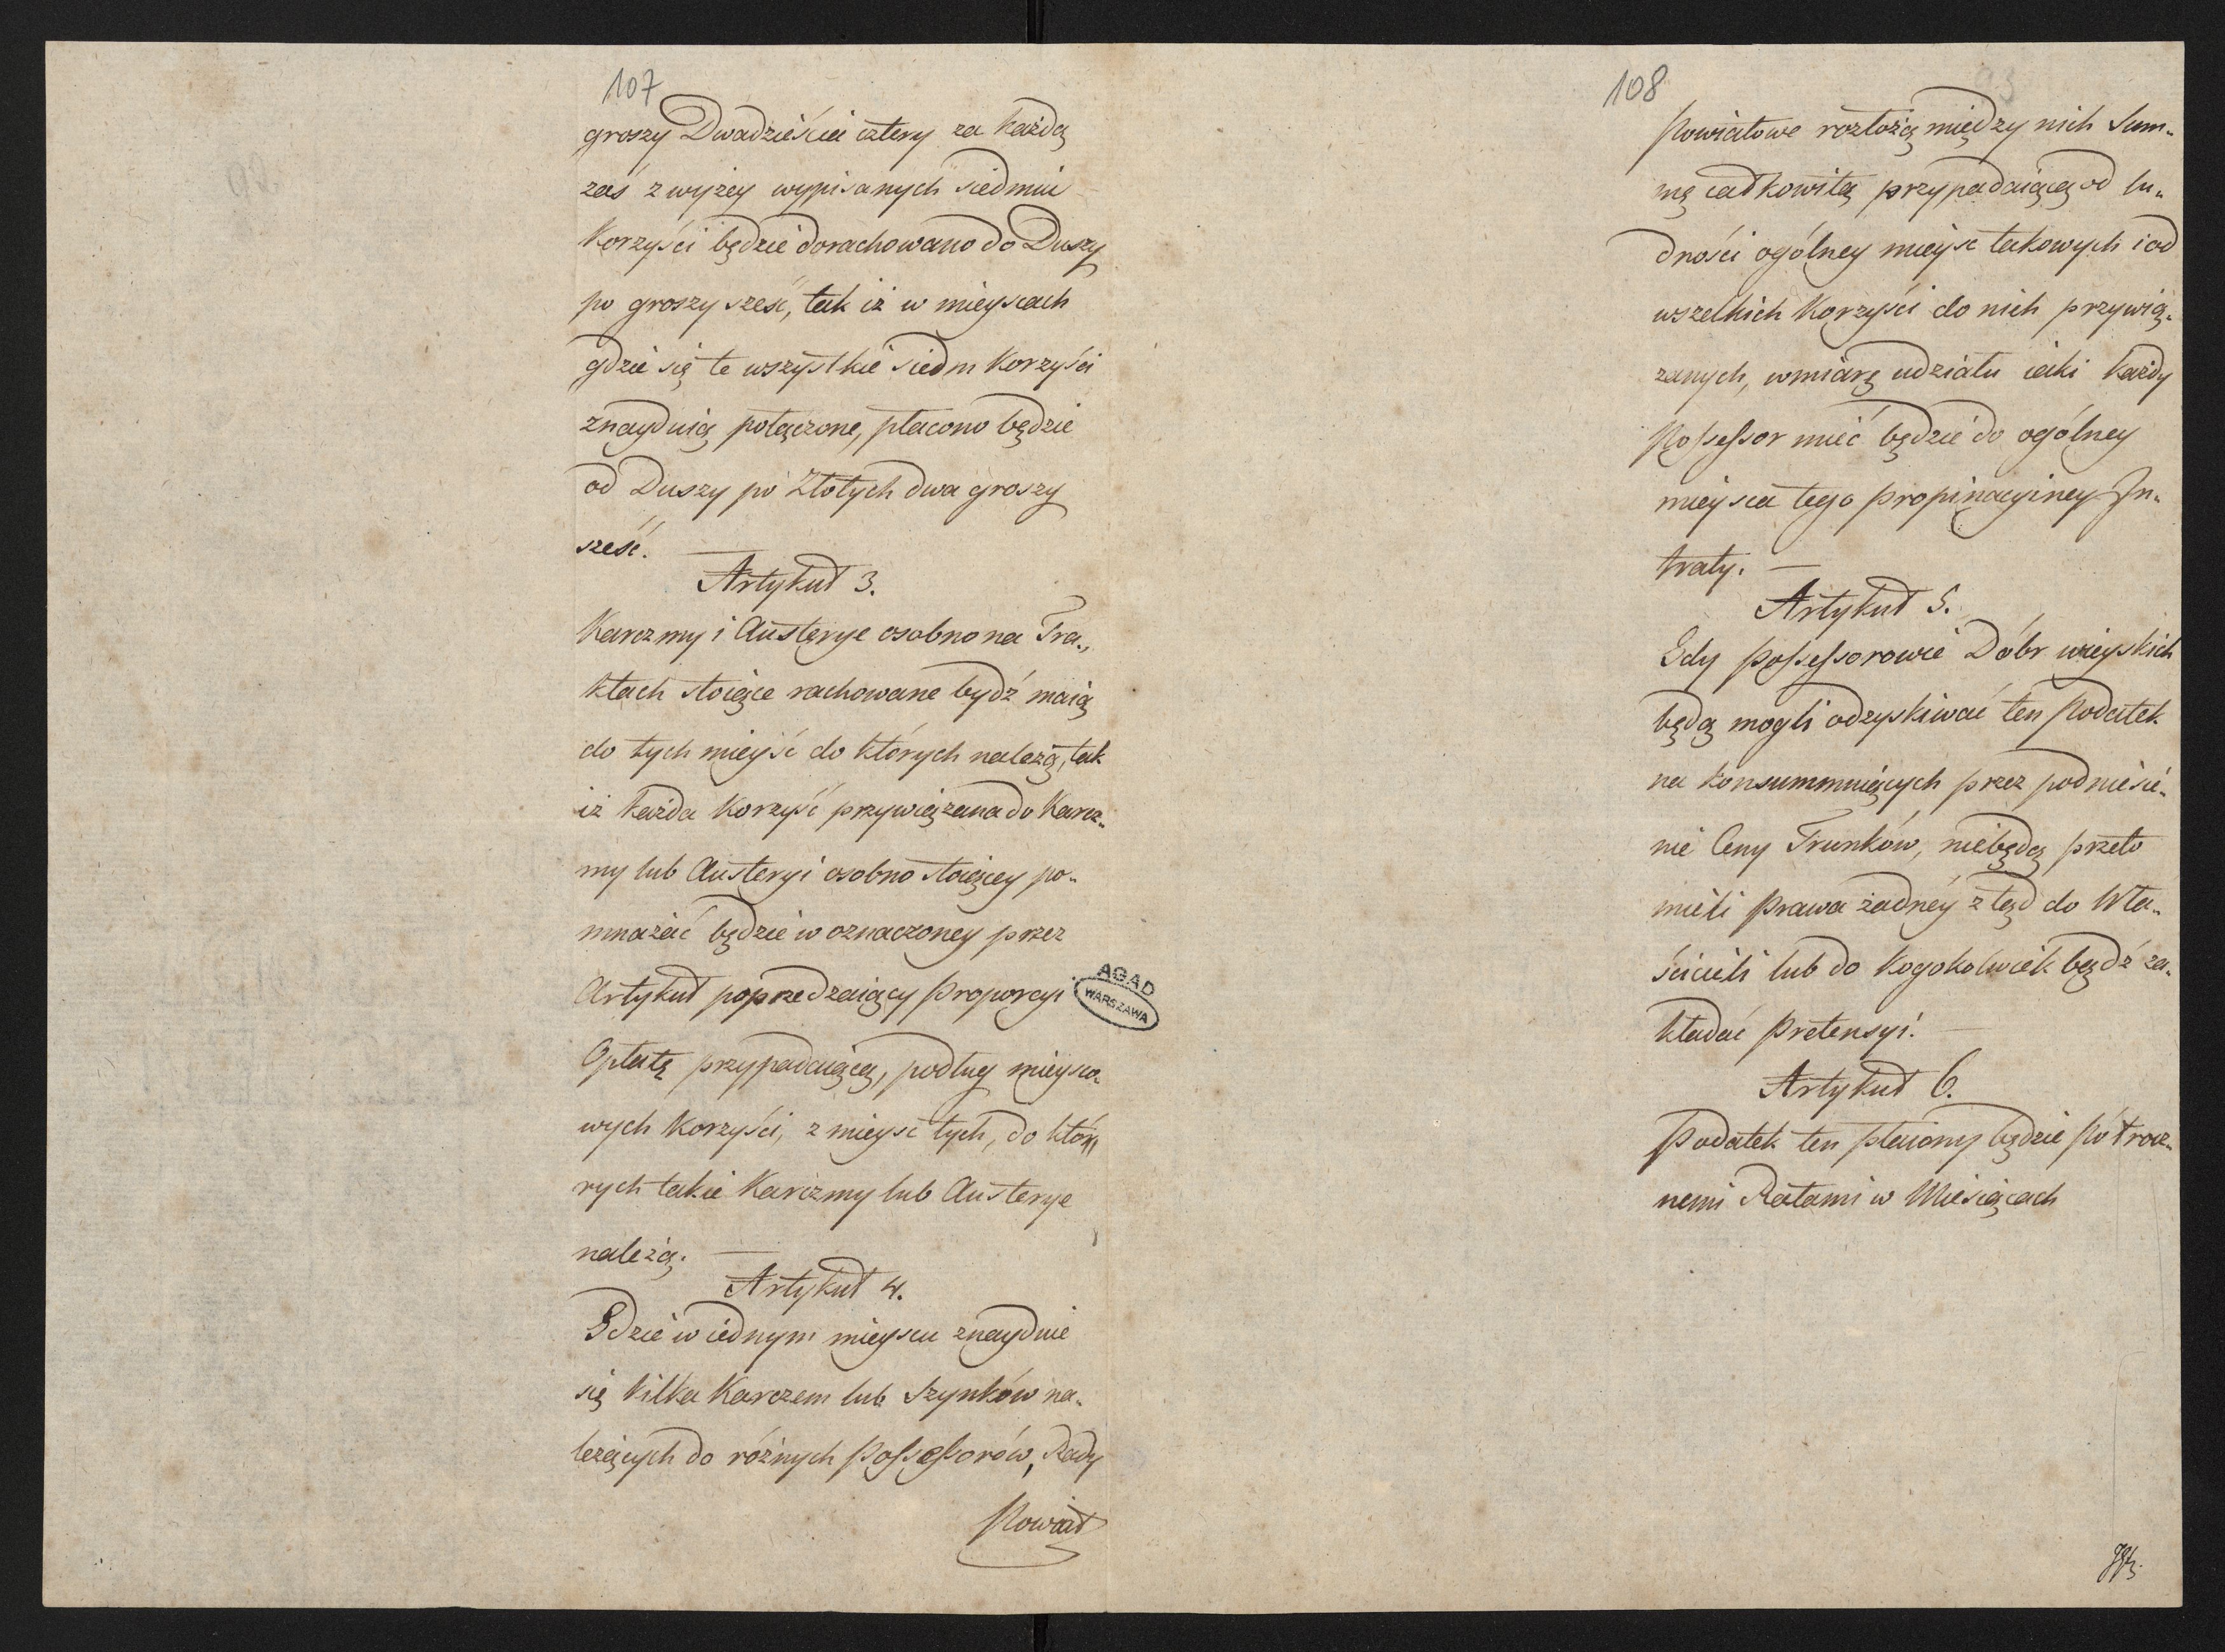 107
groszy Dwadzieścia cztery za każdą
zaś z wyżey wypisanych siedmiu
korzyści będzie dorachowano do Duszy
po groszy sześć, tak iż w mieyscach
gdzie się te wszystkie siedm korzyści
znayduią połączone, płacono będzie
od Duszy po Złotych dwa groszy
sześć. —
Artykuł 3.
Karczmy i Austerye osobno na Tra-
ktach stoiące rachowane bydź maią
do tych mieysc do których należą, tak
iż każda korzyść przywiązana do Karcz-
my lub Austeryi osobno stoiącey po-
mnażać będzie w oznaczoney przez
Artykuł poprzedzaiący Proporcyi
Opłatę przypadaiącą, podług mieysco-
wych korzyści, z mieysc tych, do któ-
rych takie Karczmy lub Austerye
należą. —
Artykuł 4.
Gdzie w iednym mieyscu znayduie
się kilka Karczem lub Szynków na-
leżących do różnych Possessorów, Rady
Powiat
AGAD
WARSZAWA
108
93
Powiatowe rozłożą między nich Sum-
mę całkowitą przypadaiącą od lu-
dności ogólney mieysc takowych i od
wszelkich korzyści do nich przywią-
zanych, w miarę udziału iaki każdy
Possessor mieć będzie do ogólney
mieysca tego propinacyiney In-
traty. —
Artykuł 5.
Gdy Possessorowie Dóbr wieyskich
będą mogli odzyskiwać ten Podatek
na konsummuiących przez podniesie-
nie Ceny Trunków, niebędą przeto
mieli Prawa żadnéy ztąd do Wła-
ścicieli lub do kogokolwiek bądź za-
kładać Pretensyi. —
Artykuł 6.
Podatek ten płacony będzie Półrocz-
nemi Ratami w Miesiącach